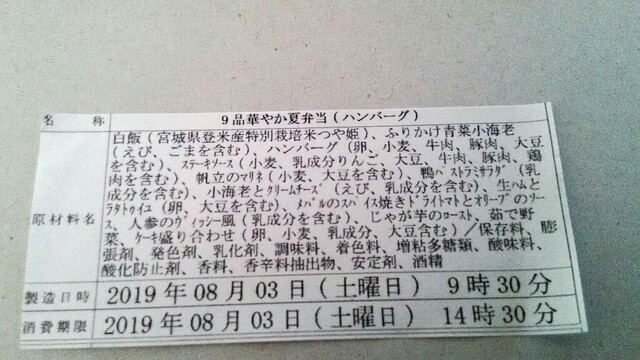 名　称　９品華やか夏弁当(ハンバーグ)
白飯(宮城県登米産特別栽培米つや姫)、ふりかけ青菜小海老
(えび、ごまを含む)、ハンバーグ(卵、小麦、牛肉、豚肉、大豆
を含む)、ｽﾃｰｷｿｰｽ(小麦、乳成分りんご、大豆、牛肉、豚肉、鶏
肉を含む)、帆立のマリネ(大豆を含む)、鴨ﾊﾟｽﾄﾗﾐｻﾗﾀﾞ(乳
成分を含む)、小海老とｸﾘｰﾑﾁｰｽﾞ(えび、乳成分を含む)、生ﾊﾑと
原材料名　ﾗﾀﾄｩｲﾕ(卵、大豆を含む)、ﾒﾊﾞﾙのｽﾊﾟｲｽ焼きﾄﾞﾗｲﾄﾏﾄとｵﾘｰﾌﾞのｿｰ
ｽ、人参のｳﾞｨｯｼｰ風(乳成分を含む)、じゃが芋のﾛｰｽﾄ、茹で野
菜、ｹｰｷ盛り合わせ(卵、小麦、乳成分、大豆含む)／保存料、膨
張剤、発色剤、乳化剤、調味料、着色料、増粘多糖類、酸味料、
酸化防止剤、香料、香辛料抽出物、安定剤、酒精
製造日時　2019年08月03日(土曜日)　9時30分
消費期限　2019年08月03日(土曜日)　14時30分